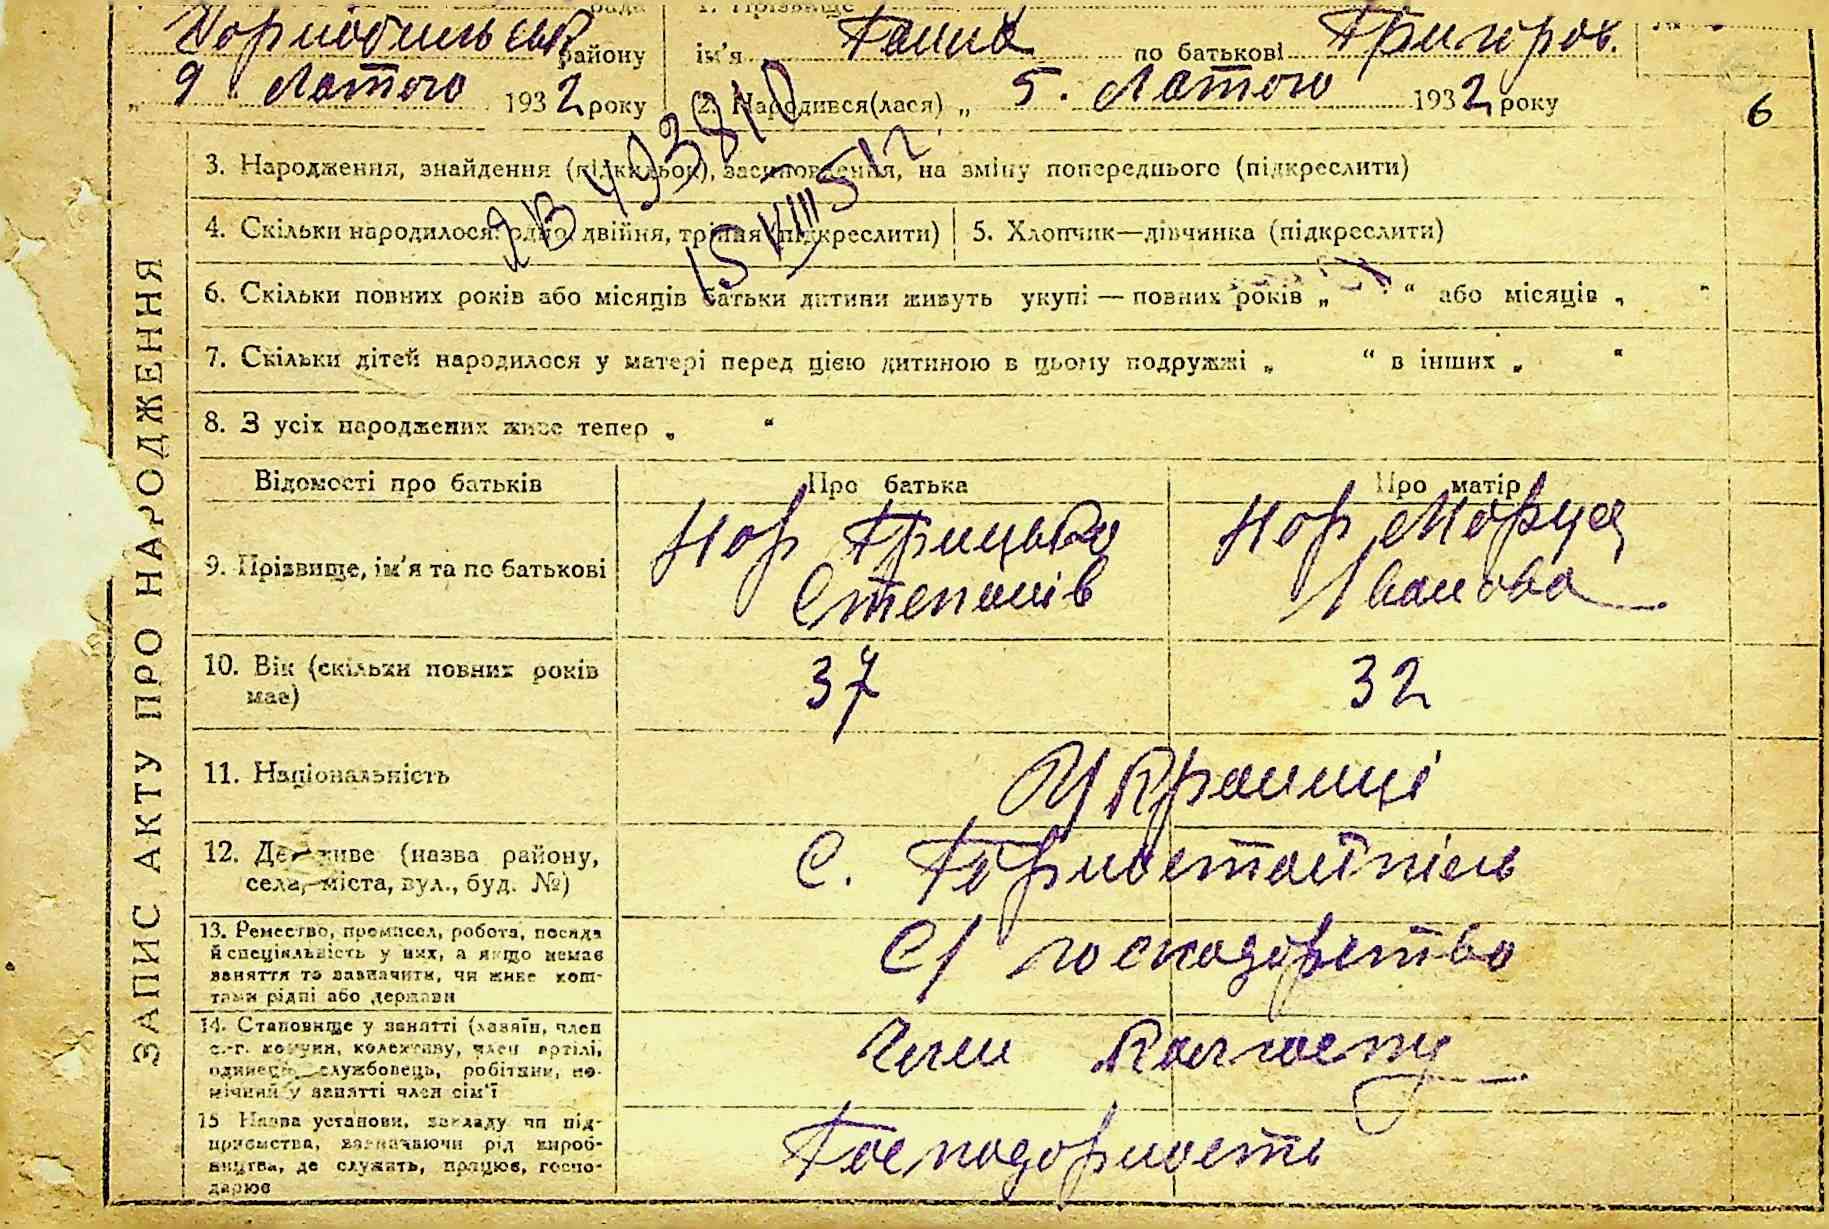 рада 1. Прізвище
Чорнобильськ району ім'я Ганна по батькові Григоров.
„ 9 “ Лютого 1932 року 2. Народився(лася) „ 5. Лютого 1932 року
6
3. Народження, знайдення (підкидьок), засиновлення, на зміну попереднього (підкреслити)
4. Скільки народилося: одно, двійня, трійня (підкреслити) 5. Хлопчик—дівчинка (підкреслити)
6. Скільки повних років або місяців батьки дитини живуть укупі — повних років „ “ або місяців „ “
7. Скільки дітей народилося у матері перед цією дитиною в цьому подружжі „ “ в інших „ “
8. З усіх народжених живе тепер „ “
ЗАПИС АКТУ ПРО НАРОДЖЕННЯ
Відомості про батьків Про батька Про матір
9. Прізвище, ім'я та по батькові
Нор Грицько
Степанів
Нор Маруся
Іванова
10. Вік (скільки повних років має) 37 32
11. Національність Українці
12. Де живе (назва району,
села, міста, вул., буд. №)
с. Горностайпіль
13. Ремество, промисел, робота, посада
й спеціяльність у них, а якщо немає
заняття то зазначити, чи живе кош-
тами рідні або держави
С/господарство
14. Становище у занятті (хазяїн, член
с.-г. комуни, колективу, член артілі,
одинець, службовець, робітник, по-
мічний у занятті член сім'ї
Член Колгоспу
15 Назва установи, закладу чи під-
приємства, зазначаючи рід вироб-
ництва, де служить, працює, госпо-
дарює